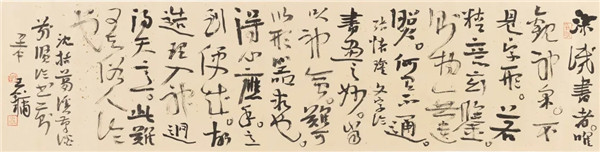 深識書者。唯
觀神采。不
見字形。若
精意玄鑒。
則物無遺
照。何有不通。
張懷瓘文字論
書畫之妙。當
以神會。難可
以形器求也。
得心應手。意
到便成。故
造理入神迥
得天意。此難
可與俗人論
也
沈括夢溪筆談
前賢論書二則